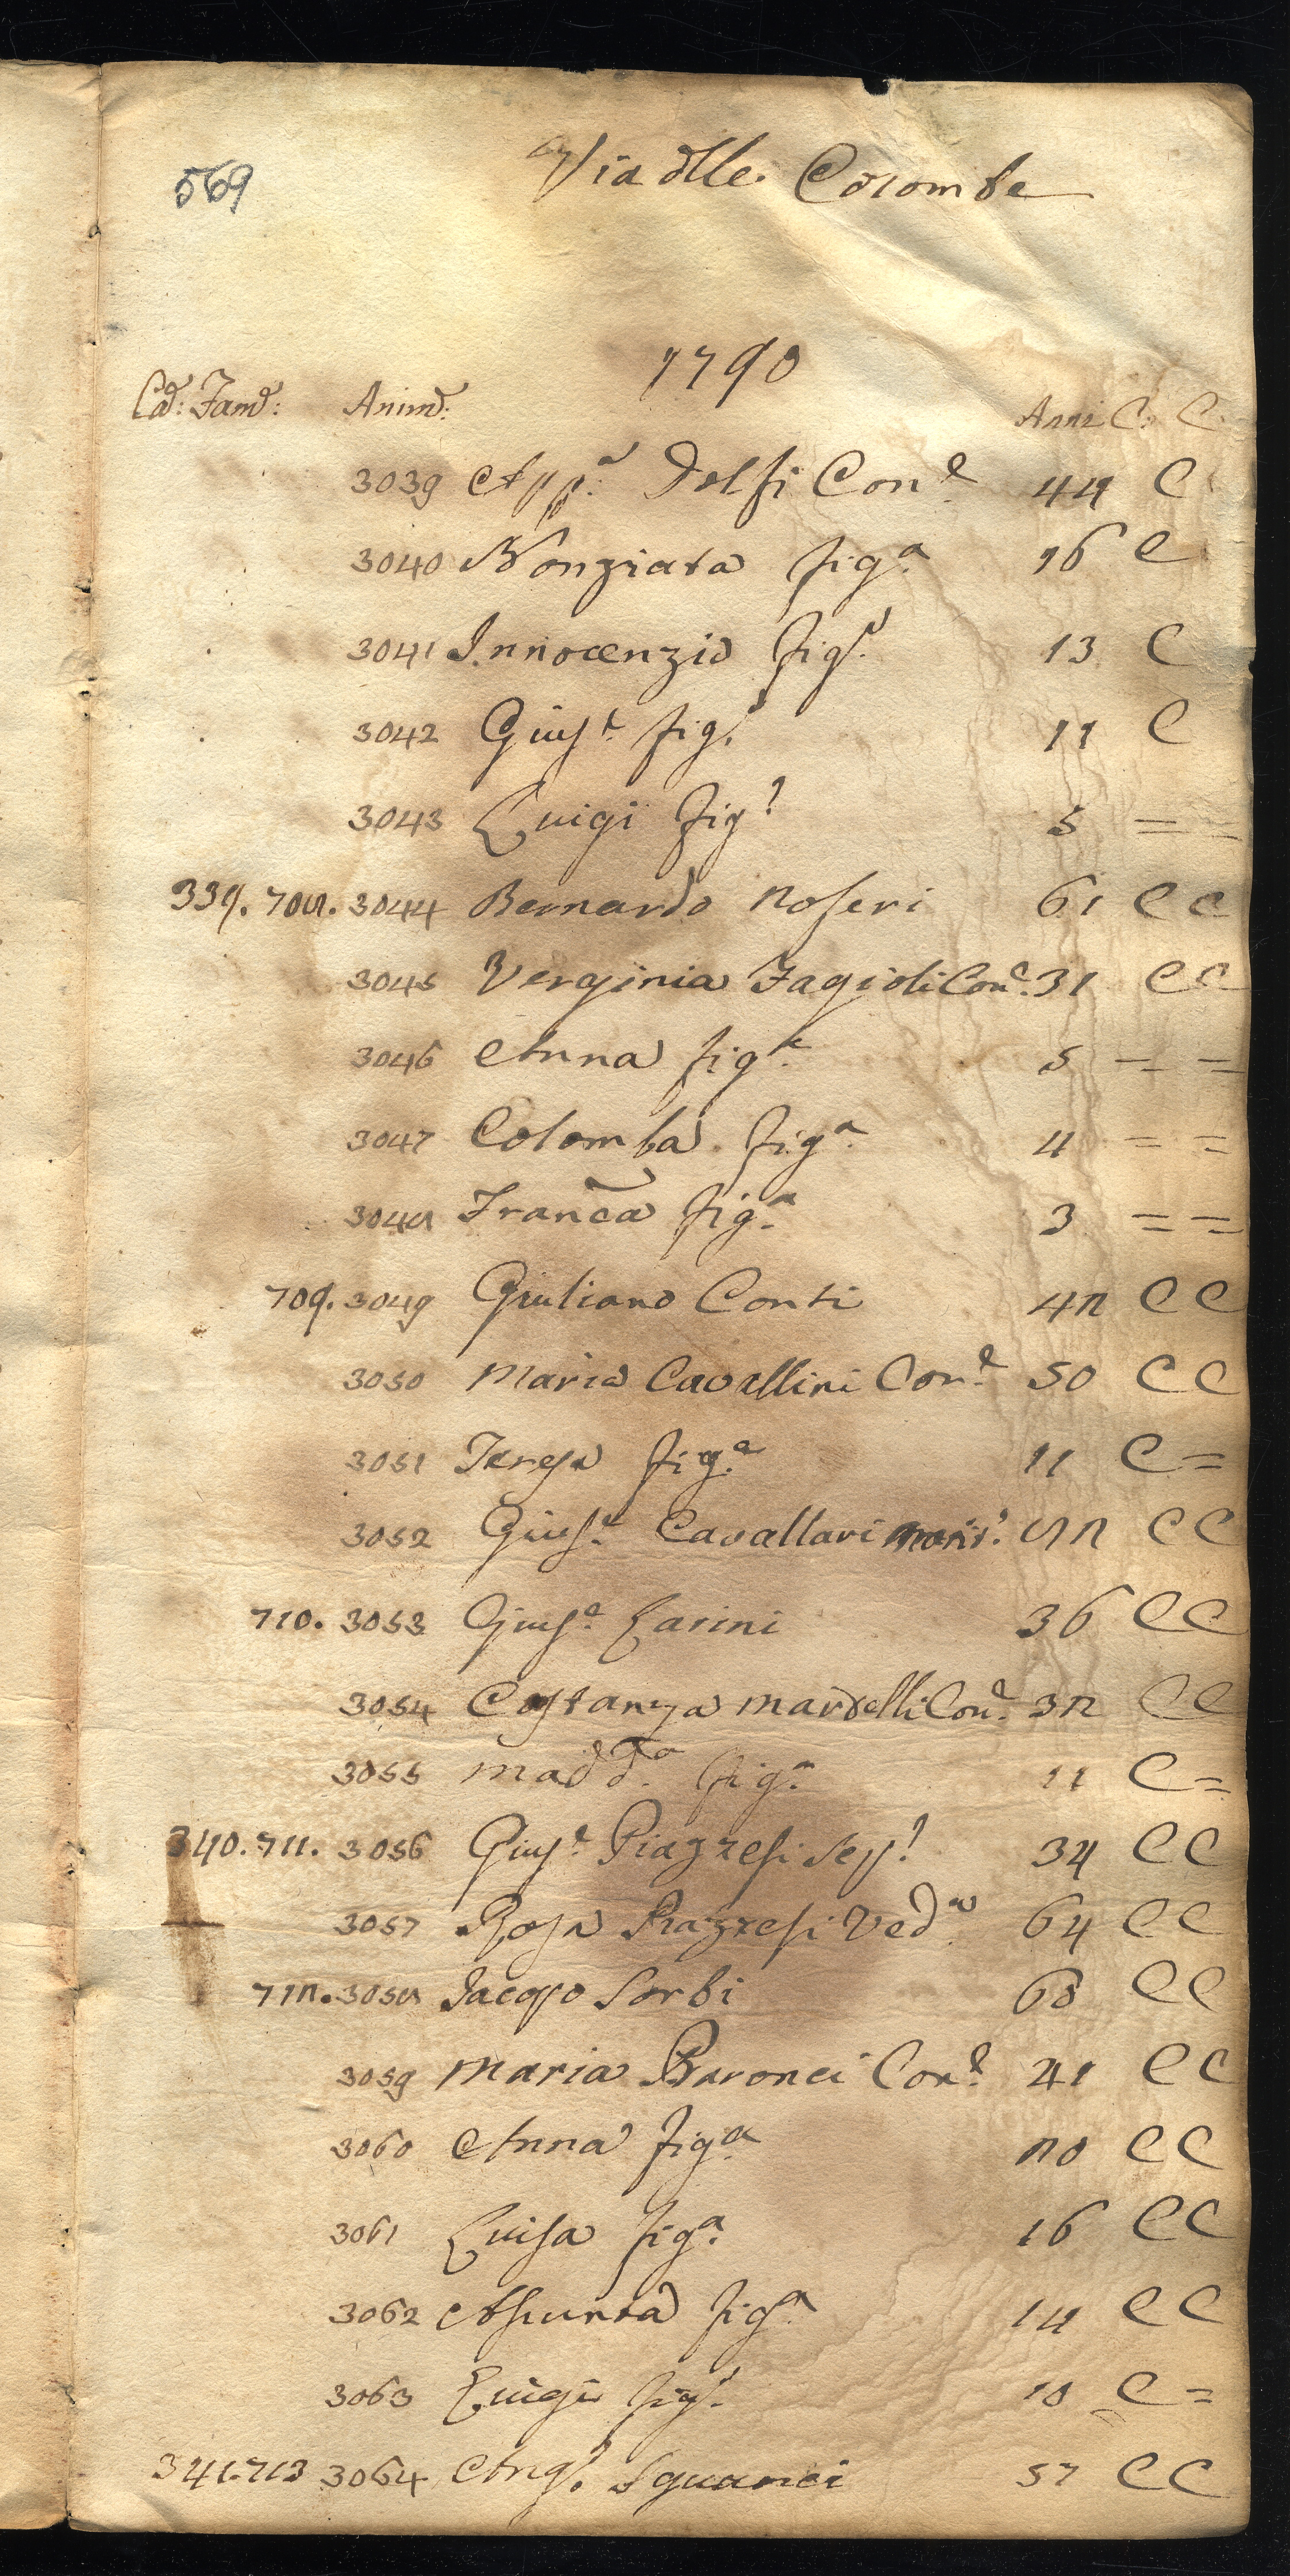 569
Via dlle Colombe
1790
Ca: Fam: Anim: Anni C: C:
3039 App.a Dolfi Con.e 44 C
3040 Nonziata fig.a 16 C
3041 Innocenzio fig.o 13 C
3042 Gius.e fig.o 11 C
3043 Luigi fig.o 5 = =
339. 708. 3044 Bernardo Noferi 61 C C
3045 Verginia Fagioli Con.e 31 C C
3046 Anna fig.a 5 = =
3047 Colomba fig.a 4 = =
3048 Franca fig.a 3 = =
709. 3049 Giuliano Conti 42 C C
3050 Maria Cavallini Con.e 50 C C
3051 Teresa fig.a 11 C =
3052 Gius.e Cavallari 82 C C
710. 3053 Gius.e Larini 36 C C
3054 Costanza Mardelli Con.e 32 C C
3055 Madd.a fig.a 11 C =
340. 711. 3056 Gius.e Piazzesi Sep.o 34 C C
3057 Rosa Piazzesi Ved.a 64 C C
712. 3058 Jacopo Sorbi 68 C C
3059 Maria Baronci Con.e 41 C C
3060 Anna fig.a 20 C C
3061 Luisa fig.a 16 C C
3062 Assunta fig.a 14 C C
3063 Luigi fig.o 10 C =
341. 713 3064 Ang.o Sguanci 57 C C